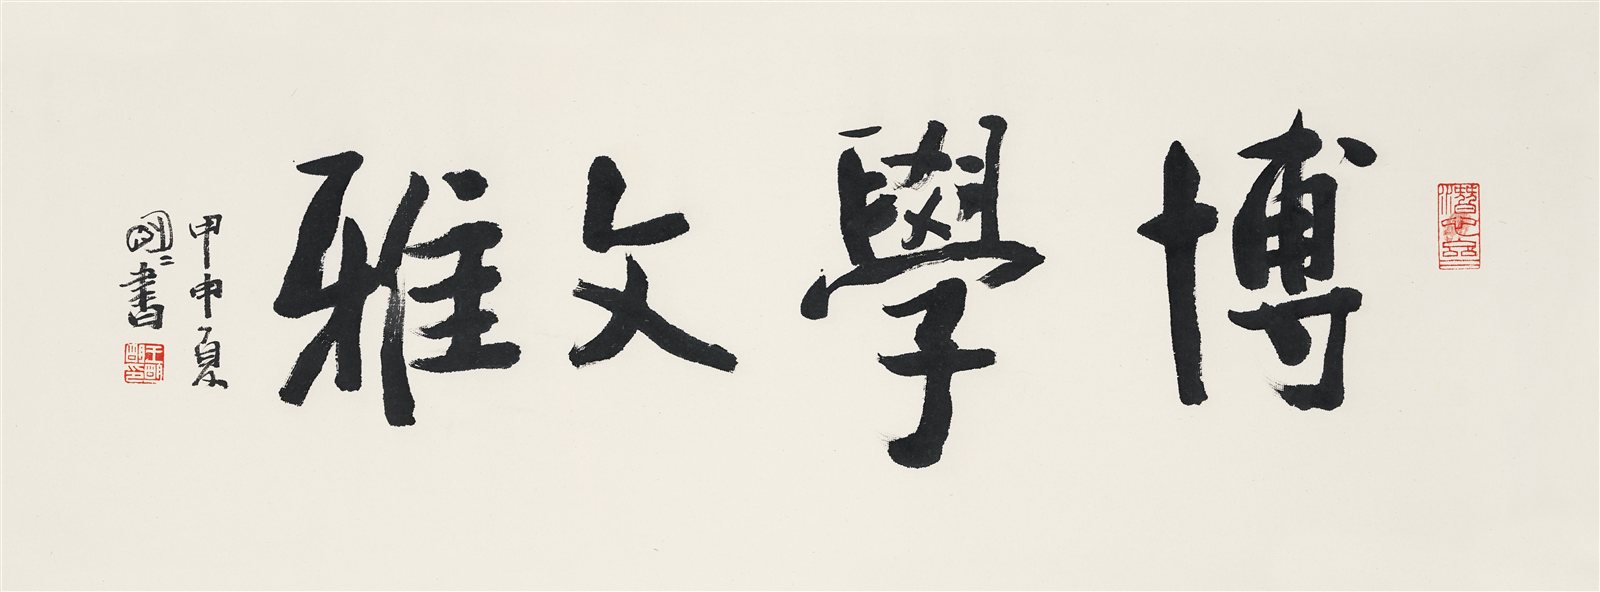 博學文雅
甲申夏
國二書